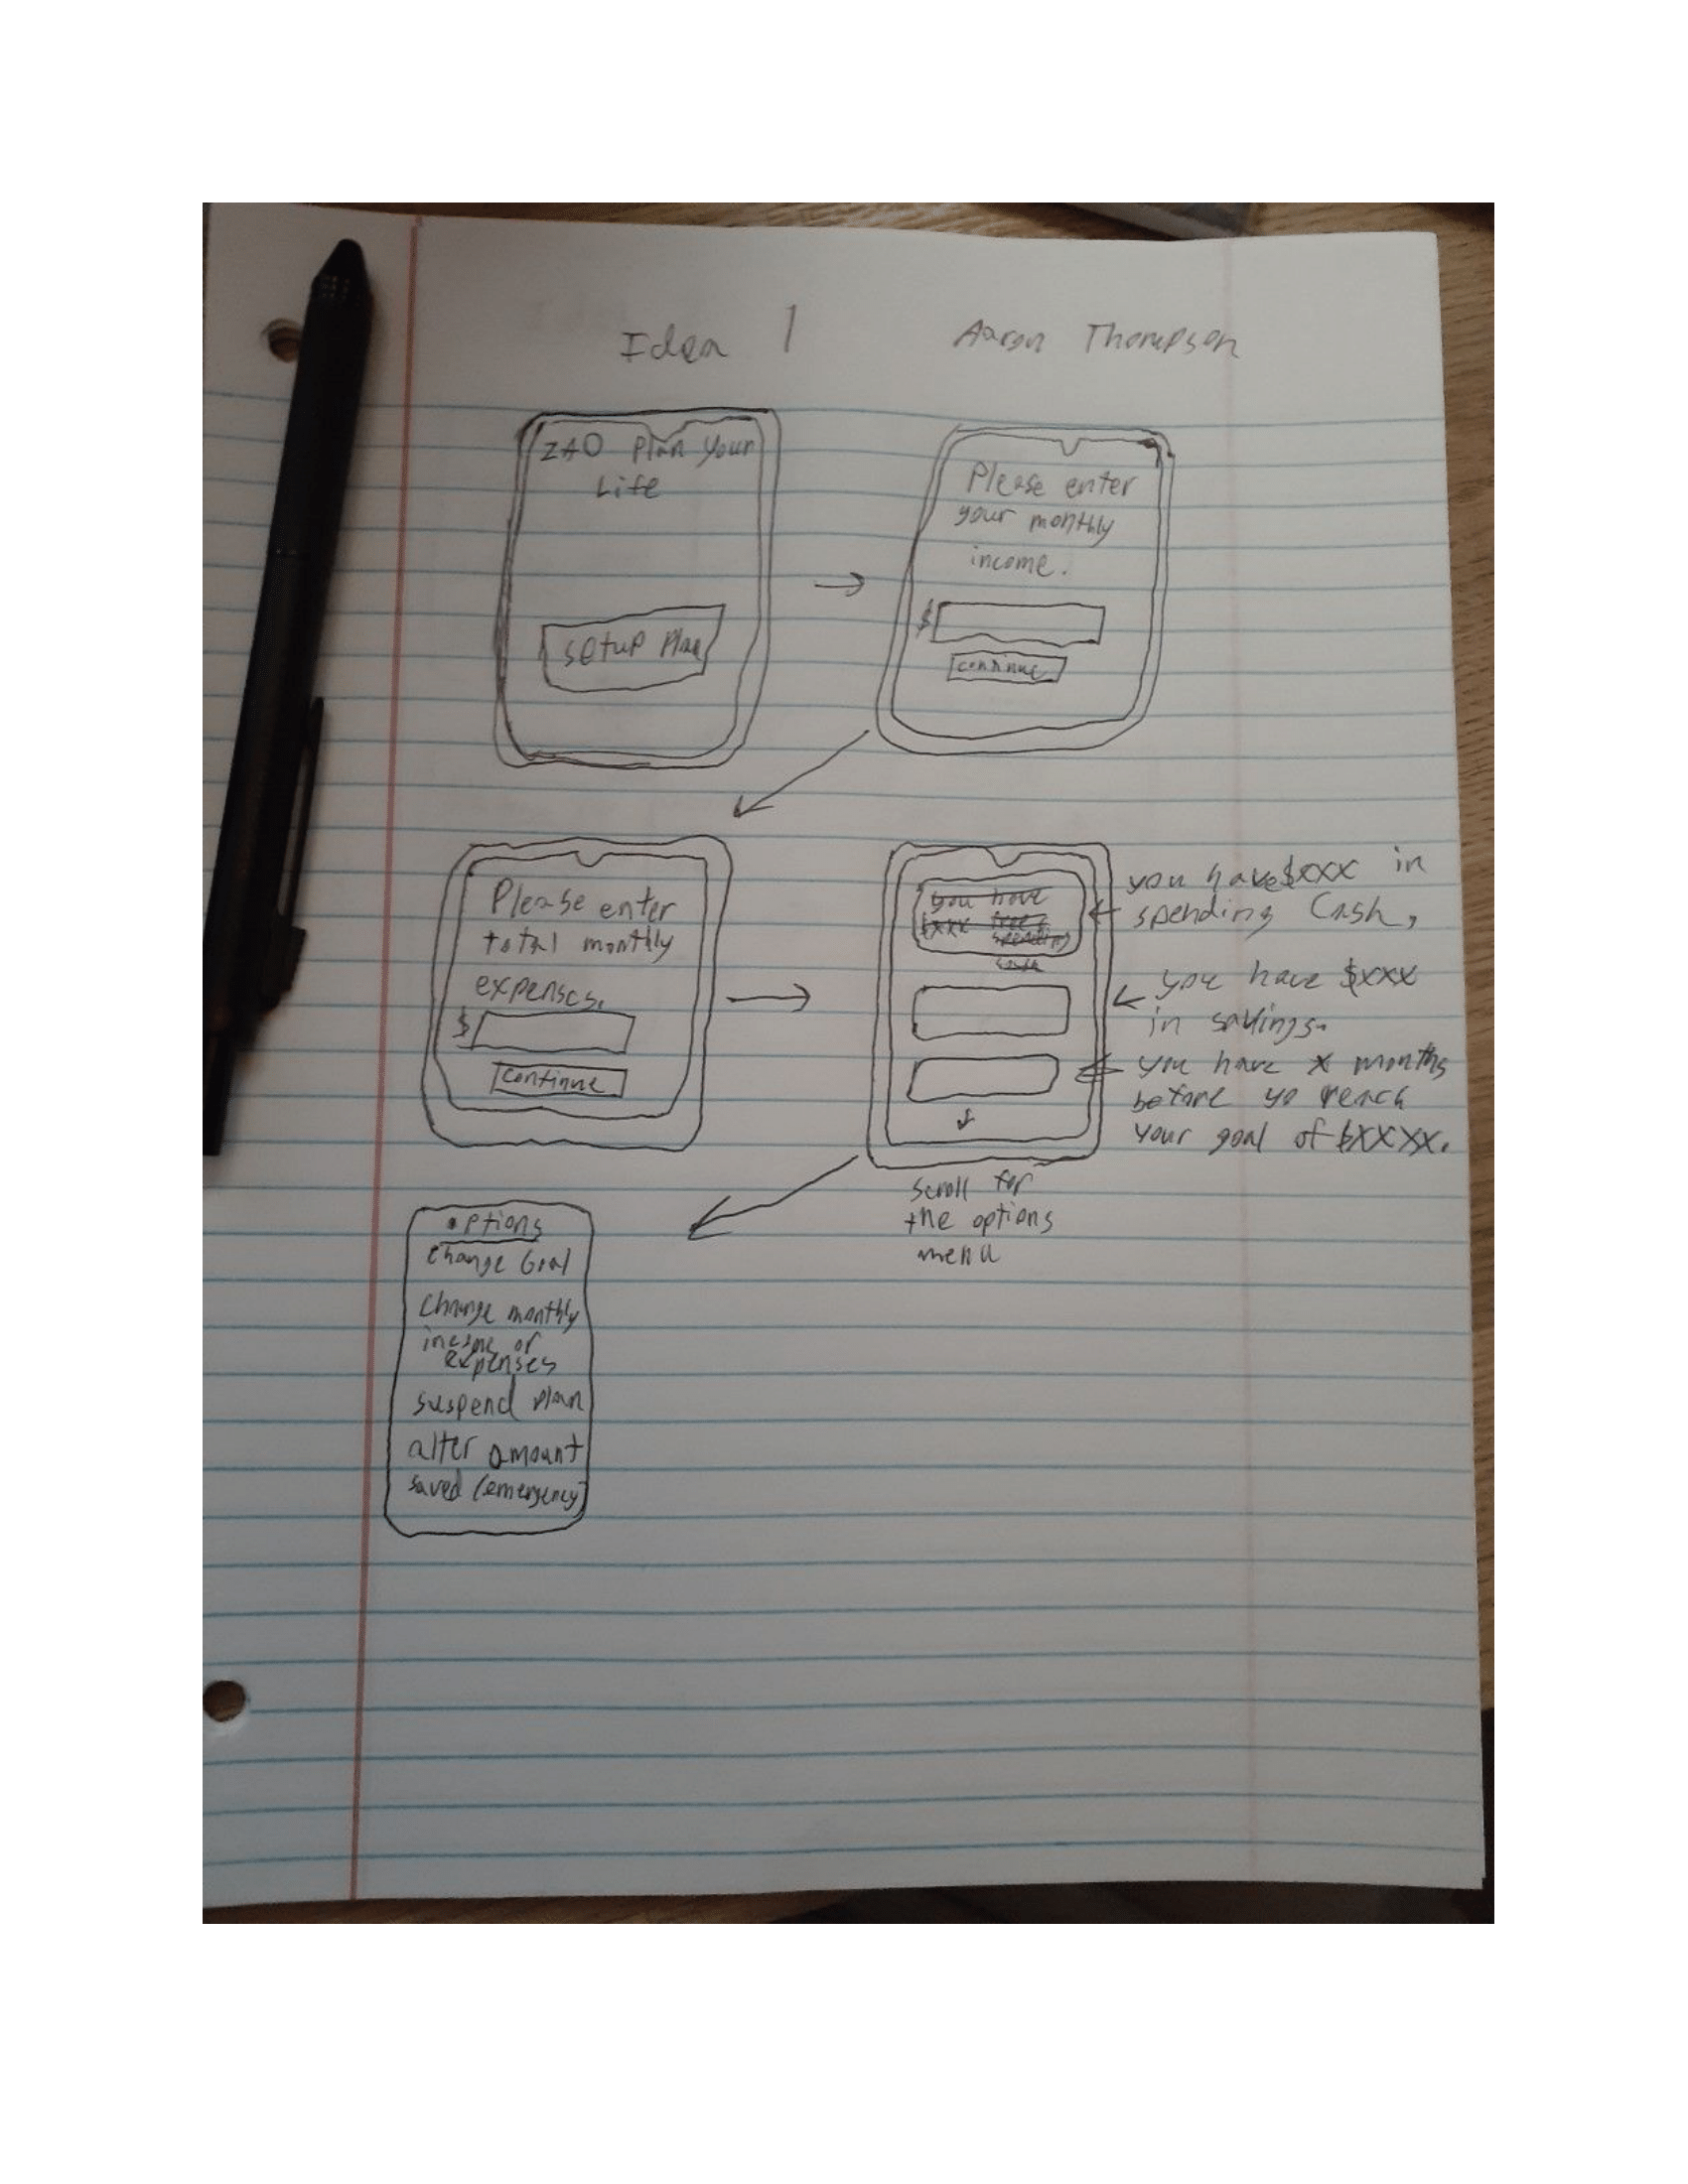 Idea 1 Aaron Thompson
ZAO Plan Your
Life
setup Plan
Please enter
your monthly
income.
$
continue
Please enter
total monthly
expenses.
$
continue
you have
$xxx free
spending
cash
you have $xxx in
spending Cash,
you have $xxx
in savings.
you have x months
before yo reach
your goal of $XXXX.
scroll for
the options
menu
options
change Goal
change monthly
income or
expenses
suspend plan
alter amount
saved (emergency)